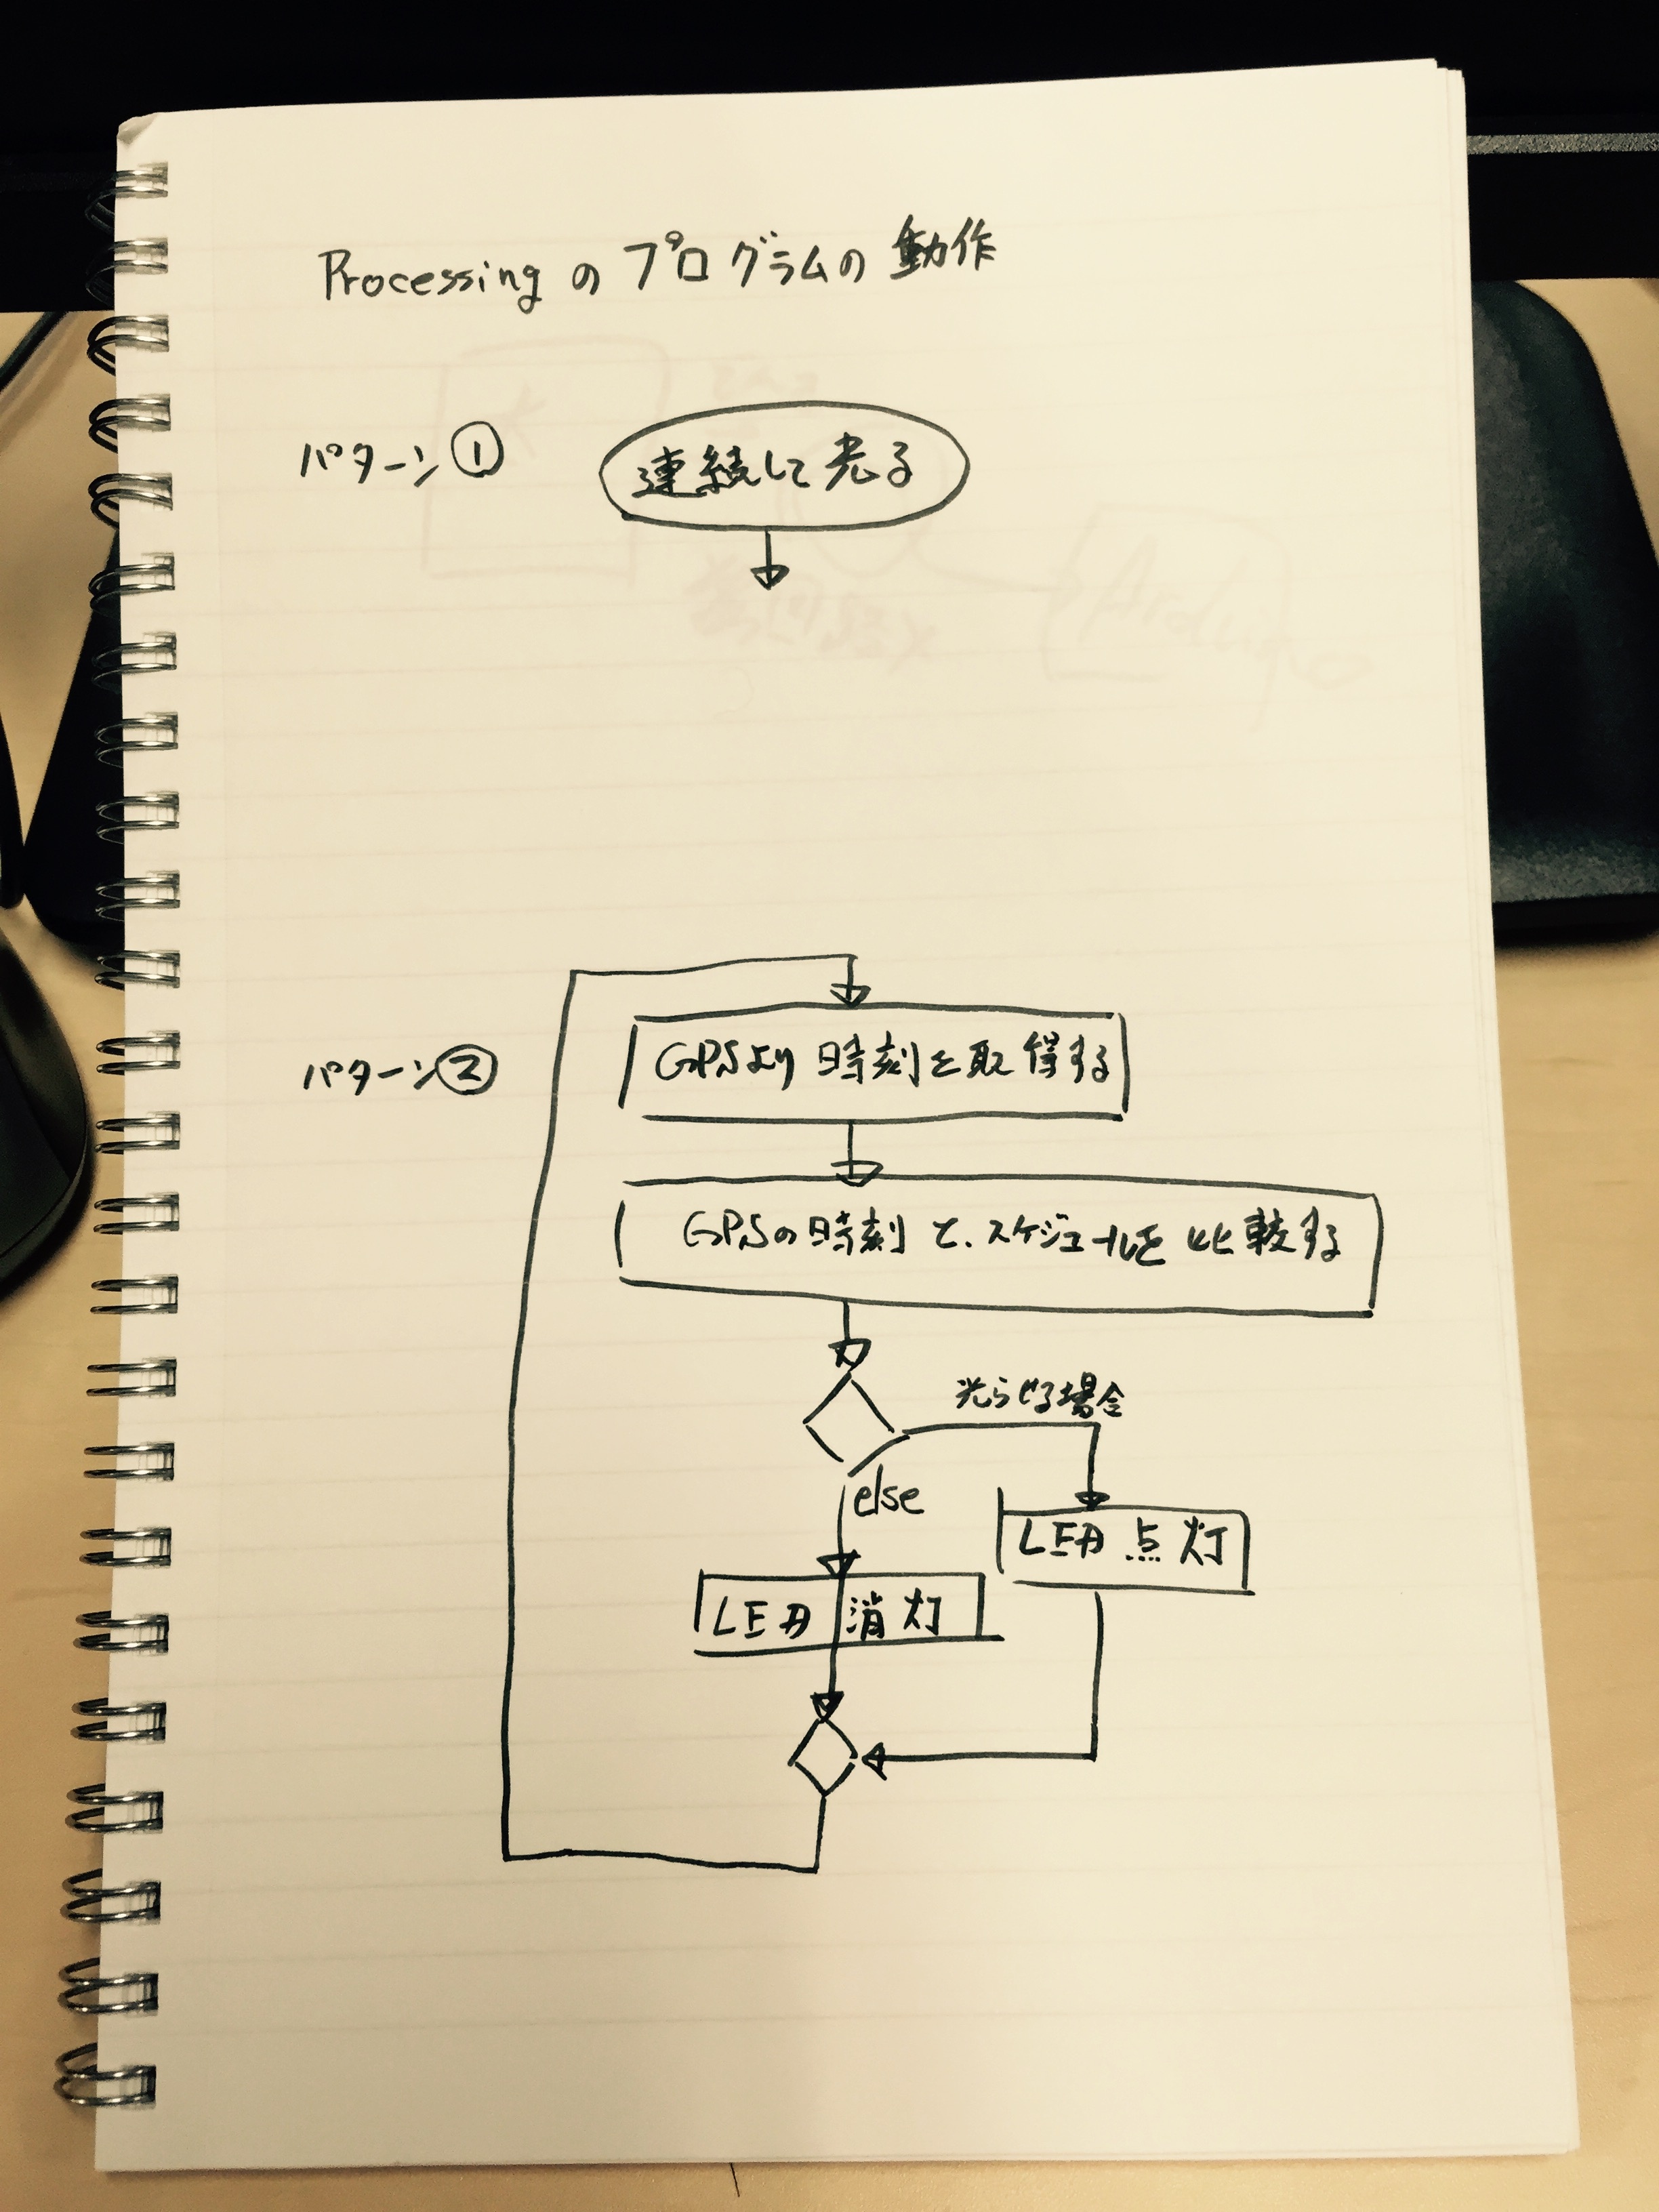 Processing の プログラムの 動作
パターン ①
連続して光る
パターン②
GPSより 時刻を取得する
GPSの時刻 と、スケジュールを 比較する
光らせる場合
else
LED 点灯
LED 消灯
Arduino